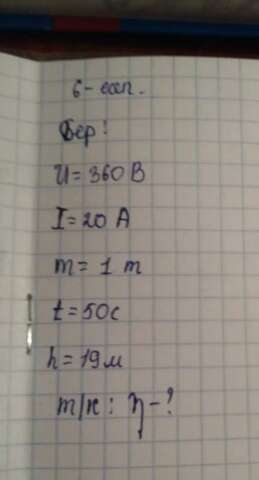 6-есеп.
Бер:
U=360 В
I=20 А
m= 1 т
t=50с
h=19м
т/к: η-?